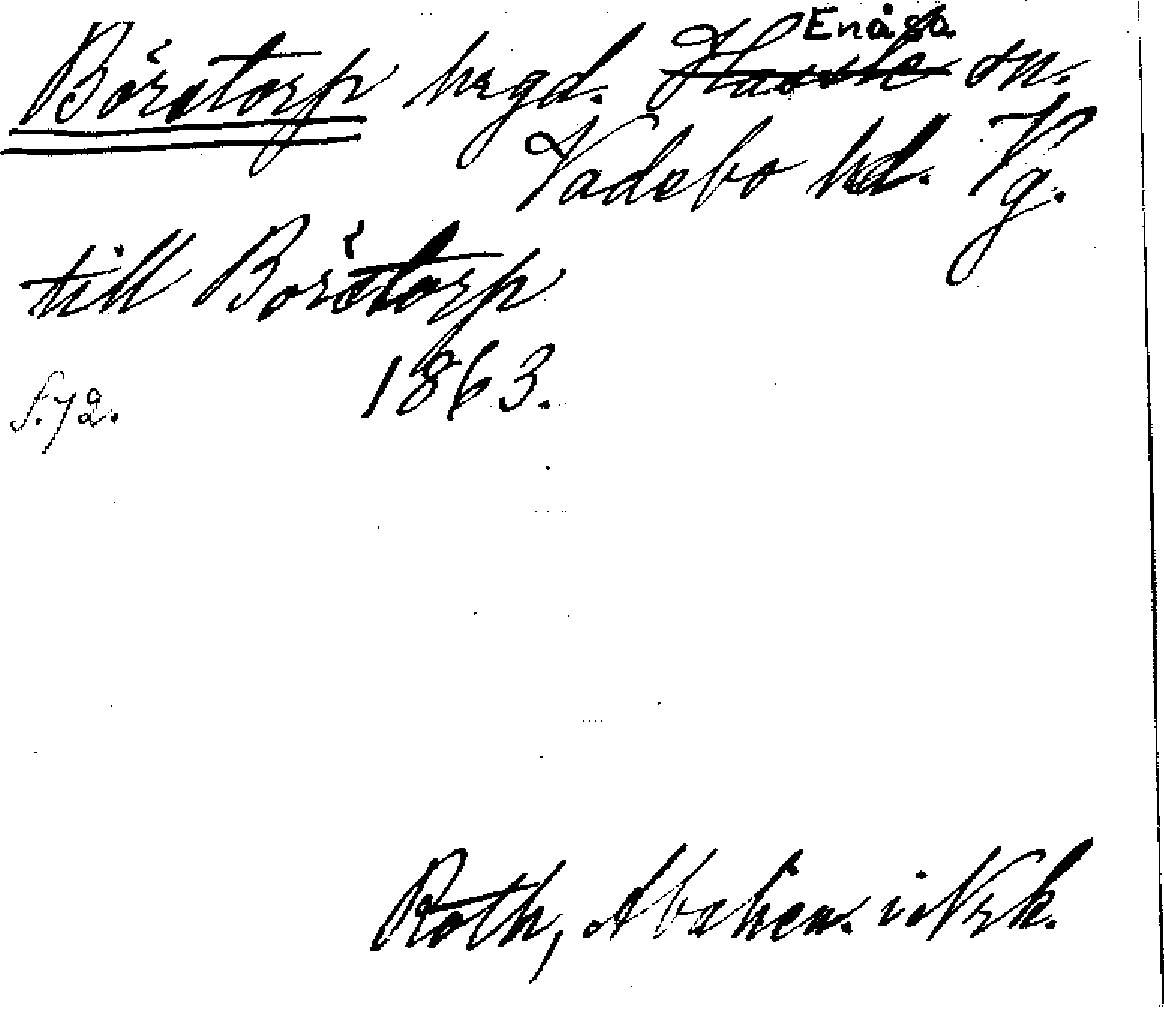 Börstorp hrgd. Enåsa Hassle sn.
Vadsbo hd. Vg.
till Börstorp
1863.
S. 72.
Roth, i Nrk.